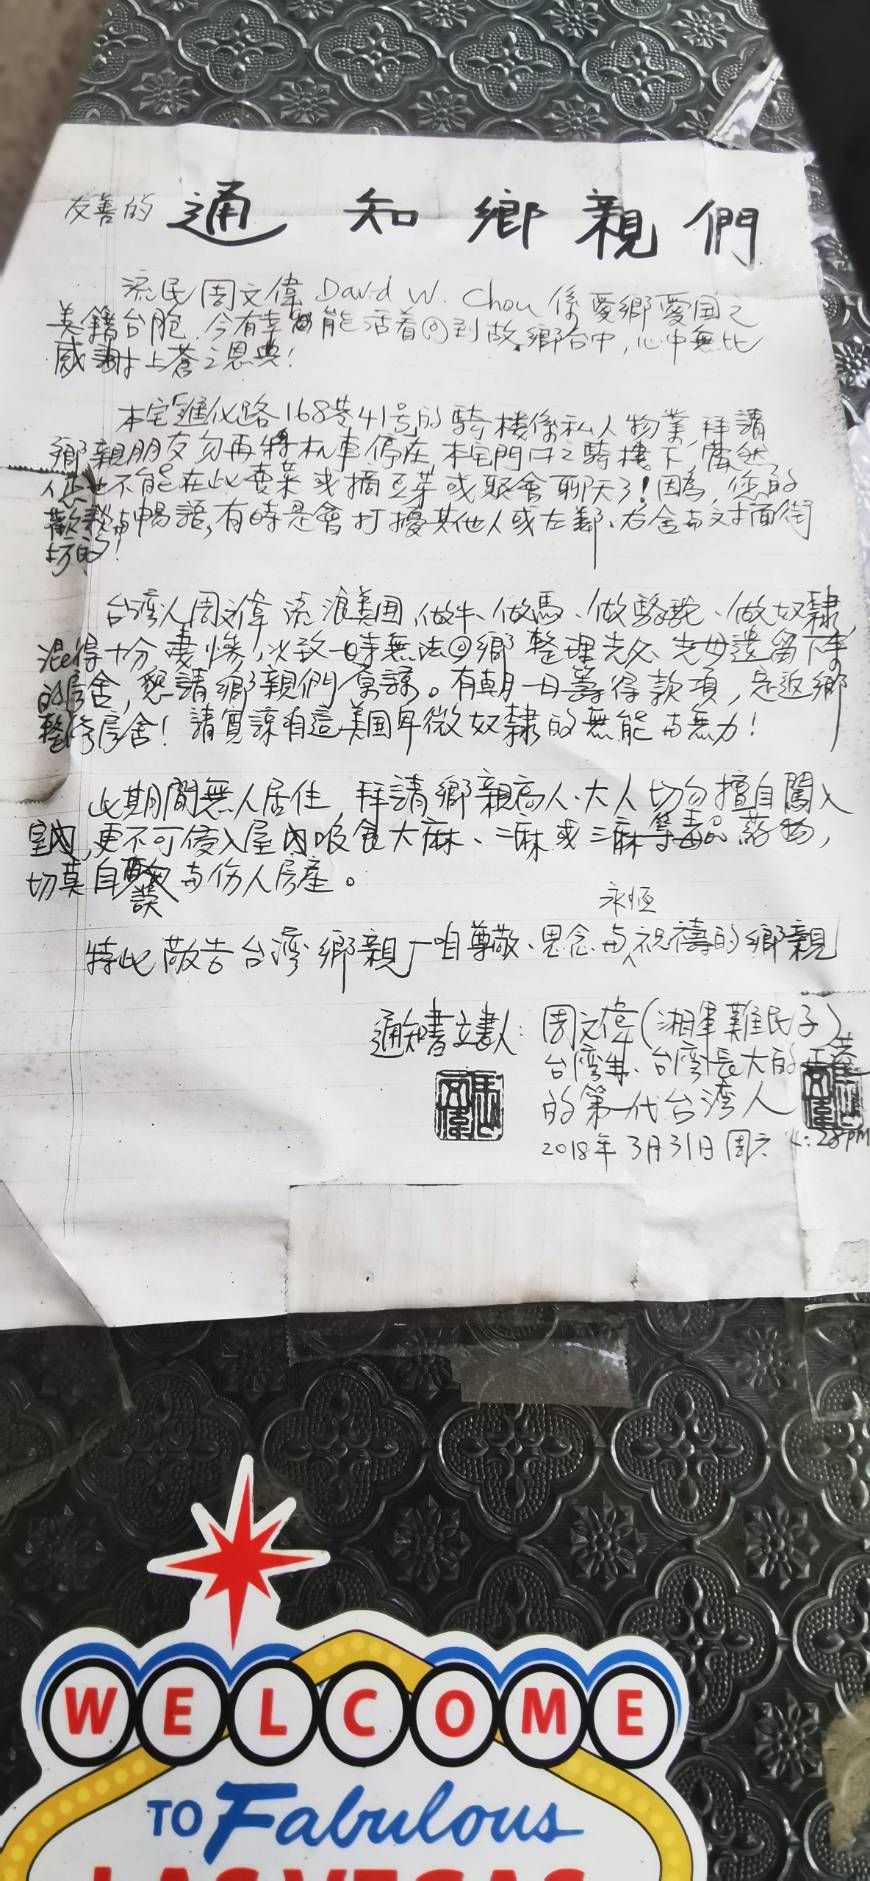 友善的 通知鄉親們
流民周文偉 David W. Chou 係愛鄉愛国之
美籍台胞,今有幸能活着回到故鄉台中,心中無比
感謝上蒼之恩典!
本宅進化路168巷41号的騎樓係私人物業,拜請
鄉親朋友勿再將机車停在本宅門口之騎樓下,當然
您也不能在此賣菜或摘豆芽或聚會聊天了!因為,您的
歡歌与暢語,有時是會打擾其他人或左鄰、右舍与对面街
坊的!
台灣人周文偉流浪美国,做牛、做馬、做駱駝、做奴隸,
混得十分凄慘,以致一時無法回鄉整理先父、先母遺留下來
的房舍,懇請鄉親們原諒。有朝一日籌得款項,是返鄉
整修房舍!請寬諒有這美国卑微奴隸的無能与無力!
此期間無人居住 拜請鄉親高人、大人切勿擅自闖入
室內,更不可侵入屋內吸食大麻、二麻或三麻等毒品葯物,
切莫自誤与伤人房產。
特此敬告台灣鄉親—咱尊敬、思念与永恒祝禱的鄉親
通知書立書人:周文偉(湘軍難民子)
台灣生、台灣長大的
的第一代台灣人
2018年3月31日周六 4:28PM
WELCOME
TO Fabulous
LAS VEGAS